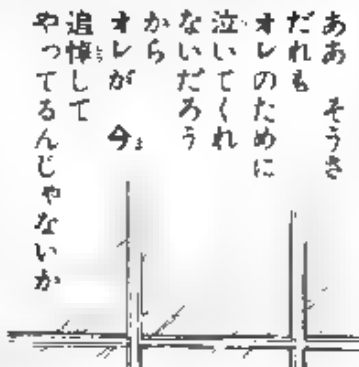 ああ そうさ
だれも
オレのために
泣いてくれ
ないだろう
から
オレが 今
追悼して
やってるんじゃないか